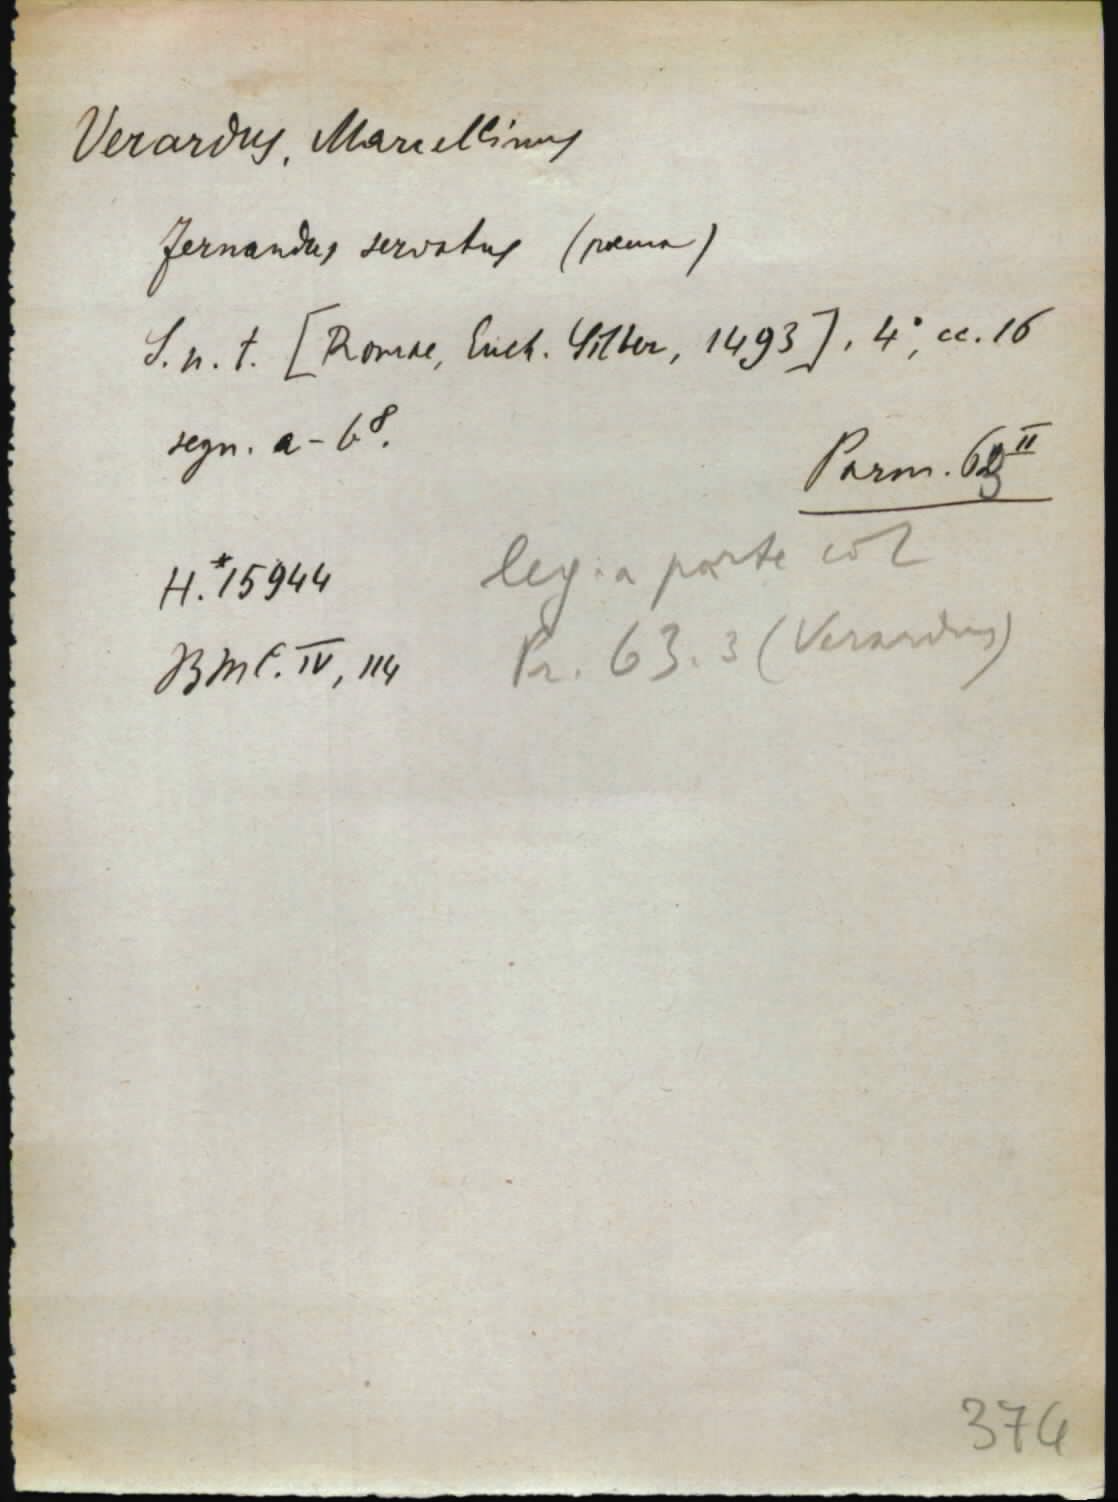 Verardus, Marcellinus
Fernandus servatus (poema)
S. n. t. [Romae, Euch. Silber, 1493]. 4°, cc. 16
segn. a-b⁸.
Parm. 63 II
H.*15944
leg. a parte col
BMC. IV, 114
Pr. 63.3 (Verardus)
374